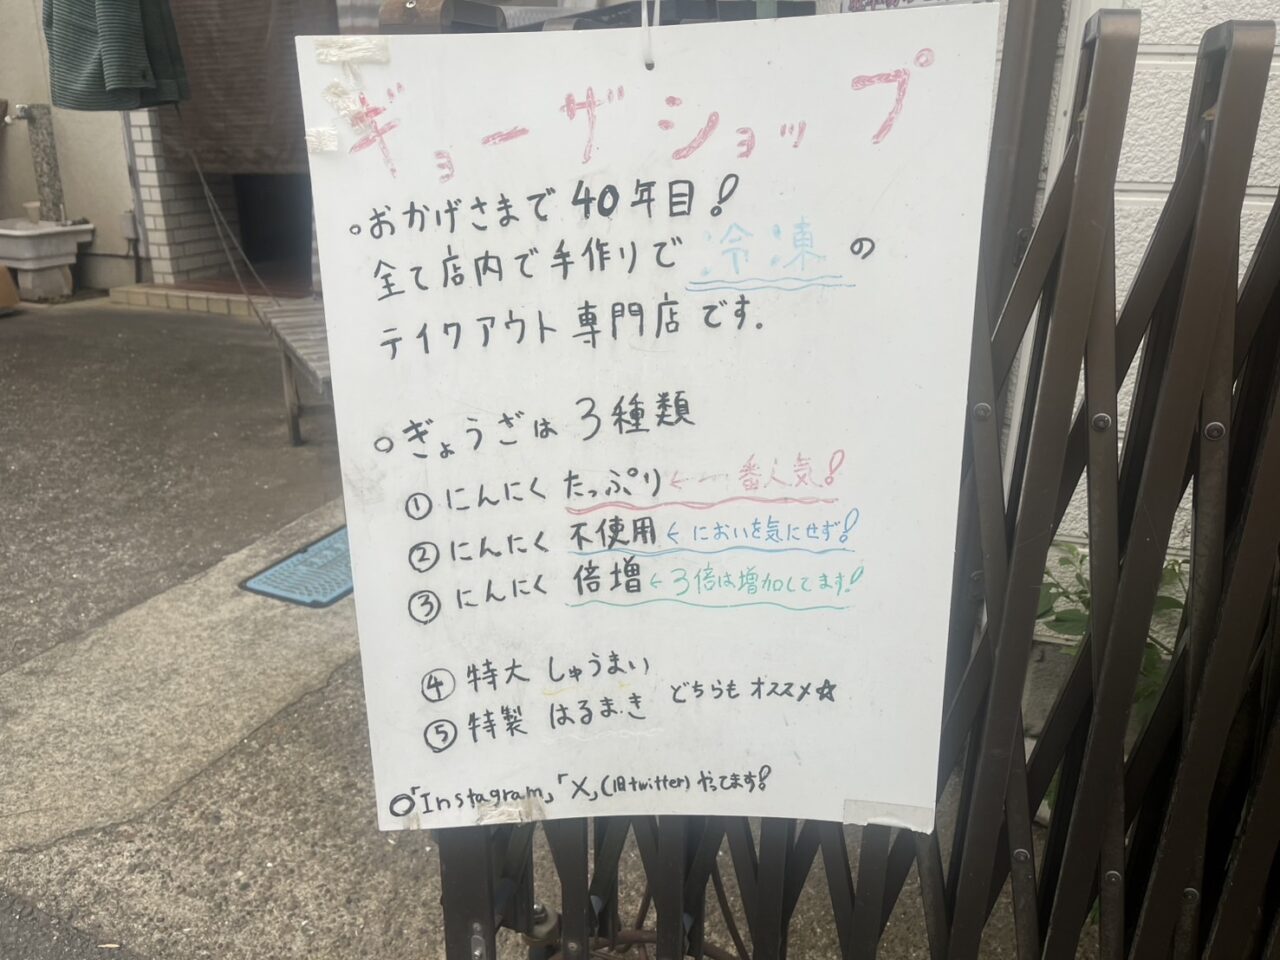 ギョーザショップ
。おかげさまで40年目!
全て店内で手作りで冷凍の
テイクアウト専門店です.
○ぎょうざは3種類
①にんにくたっぷり←一番人気!
②にんにく不使用←においを気にせず!
③にんにく倍増←3倍は増加してます!
④特大しゅうまい
⑤特製はるまき どちらもオススメ☆
○「Instagram」「X」(旧twitter)やってます!